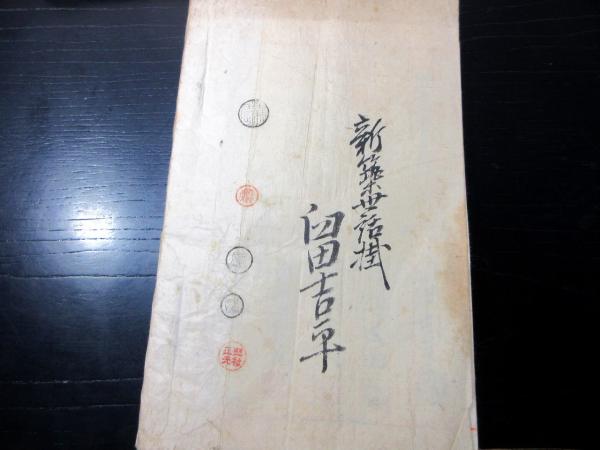 新築世話掛
臼田吉平